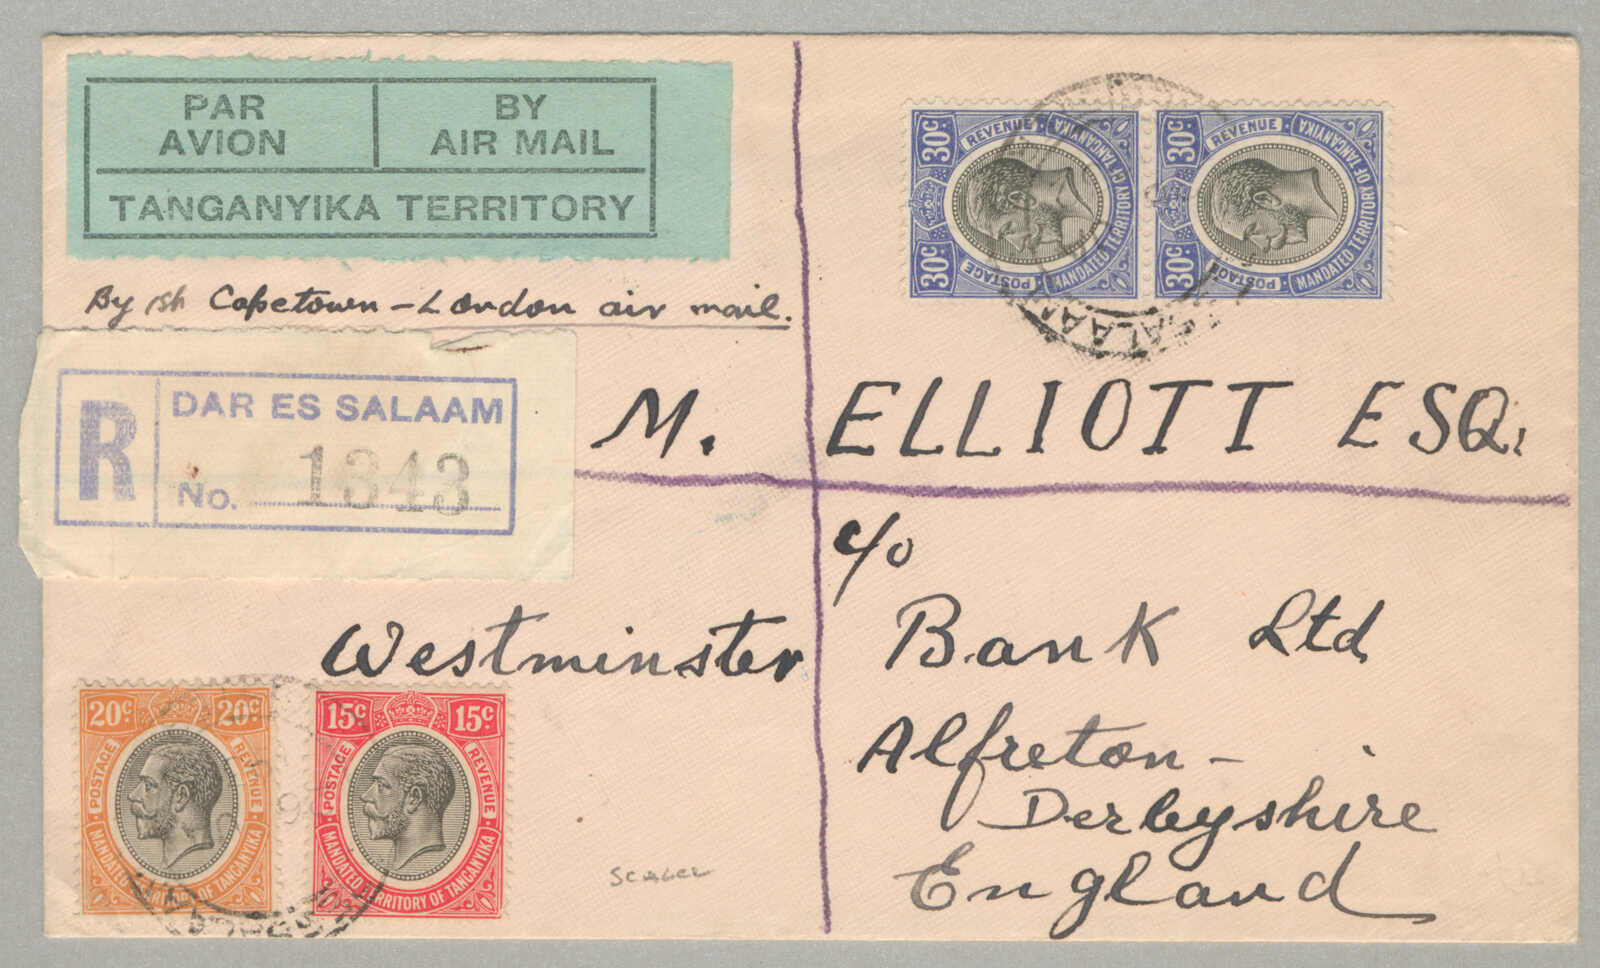 PAR AVION
BY AIR MAIL
TANGANYIKA TERRITORY
By 1st Capetown - London air mail.
R
DAR ES SALAAM
No. 1343
30c 30c
POSTAGE REVENUE
MANDATED TERRITORY OF TANGANYIKA
30c 30c
POSTAGE REVENUE
MANDATED TERRITORY OF TANGANYIKA
M. ELLIOTT ESQ.
c/o
Westminster Bank Ltd
Alfreton -
Derbyshire
England
20c 20c
POSTAGE REVENUE
MANDATED TERRITORY OF TANGANYIKA
15c 15c
POSTAGE REVENUE
MANDATED TERRITORY OF TANGANYIKA